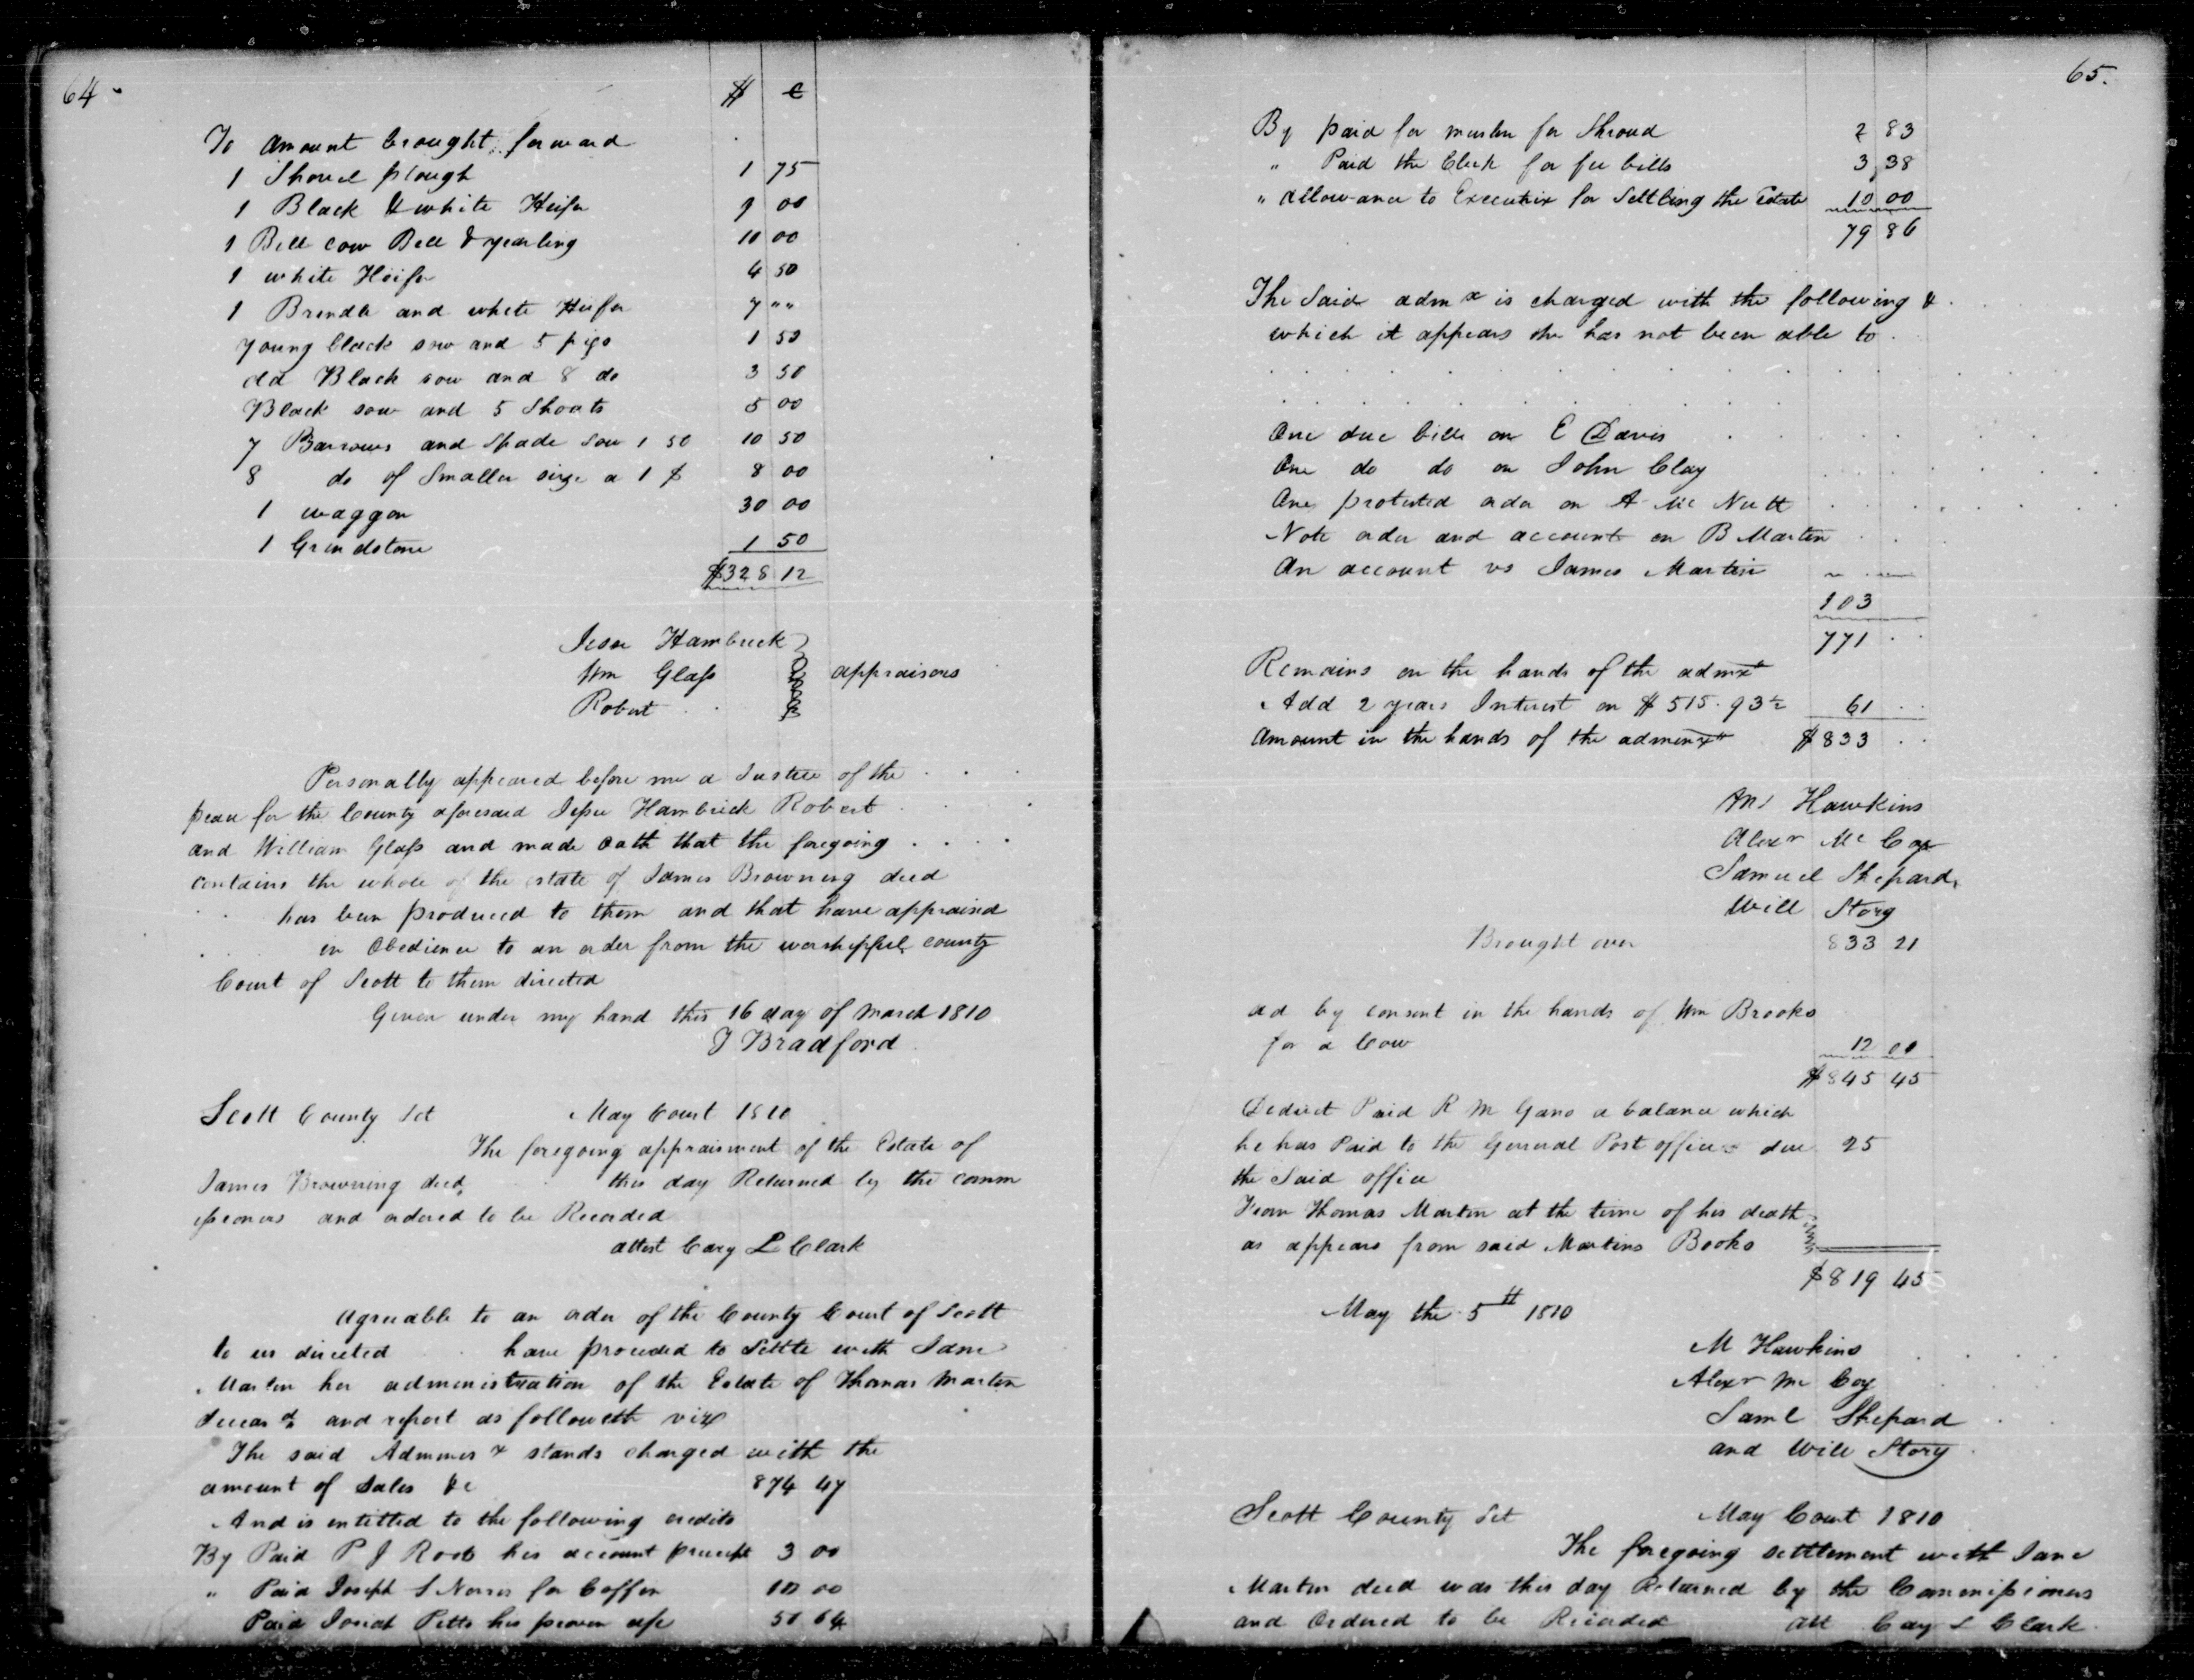 64
$ ¢
To amount brought forward
1 Shovel plough 1 75
1 Black & white Heifer 9 00
1 Bell cow Bell & yearling 10 00
1 white Heifer 4 50
1 Brindle and white Heifer 7 " "
young black sow and 5 pigs 1 50
old Black sow and 8 do 3 50
Black sow and 5 Shoats 5 00
7 Barrows and Spade Sow 1 50 10 50
8 do of Smaller size a 1 $ 8 00
1 waggon 30 00
1 Grindstone 1 50
$328 12
Jesse Hambrick
Wm Glass appraisors
Robert
Personally appeared before me a Justice of the
peace for the County aforesaid Jesse Hambrick Robert
and William Glass and made oath that the foregoing
contains the whole of the estate of James Browning decd
has been produced to them and that have appraised
in Obedience to an order from the worshipful county
Court of Scott to them directed
Given under my hand this 16 day of March 1810
J Bradford
Scott County Sct May Court 1810
The foregoing appraisment of the Estate of
James Browning decd this day Returned by the comm
issioners and ordered to be Recorded
attest Cary L Clark
Agreeable to an order of the County Court of Scott
to us directed have proceeded to Settle with Jane
Martin her administration of the Estate of Thomas Martin
deceasd and report as followeth viz
The said Adminis x stands charged with the
amount of Sales &c 874 47
And is entitled to the following credits
By Paid P J Roots his account 3 00
" Paid Joseph S Norris for Coffin 10 00
Paid Josiah Pitts his proven 50 64
65.
By paid for muslin for Shroud 2 83
" Paid the Clerk for fee bills 3 38
" allowance to Executrix for Settling the Estate 10 00
79 86
The Said adm x is charged with the following &
which it appears she has not been able to
One due bill on E Davis
One do do on John Clay
One protested order on A Mc Nutt
Note order and account on B Martin
An account vs James Martin
103
771
Remains on the hands of the admx
Add 2 years Interest on $ 515.93½ 61
Amount in the hands of the adminx $833
Hawkins
Alexr Mc Coy
Samuel Shepard
Will Story
Brought over 833 21
ad by consent in the hands of Wm Brooks
for a Cow 12 00
$845 45
Deduct Paid R M Gano a balance which
he has Paid to the General Post office due 25
the Said office
From Thomas Martin at the time of his death
as appears from said Martins Books
$819 45
May the 5th 1810
M Hawkins
Alexr Mc Coy
Saml Shepard
and Will Story
Scott County Sct May Court 1810
The foregoing settlement with Jane
Martin decd was this day Returned by the Commissioners
and Ordered to be Recorded Att Cary L Clark